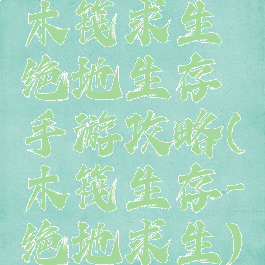 木筏求生
绝地生存
手游攻略(
木筏生存-
绝地求生)